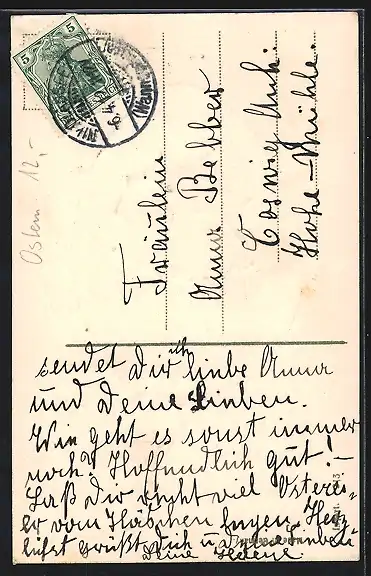 5
6.4.
Ostern 12,-
Fräulein
Anna Bebber
Coswig Anh.
Hohe-Mühle.
sendet Dir liebe Anna
und Deine Lieben.
Wie geht es sonst immer
noch? Hoffendlich gut! -
Laß Dir recht viel Osterei-
er vom Häschen legen. Herz-
lichst grüßt Dich u.
Deine Helene